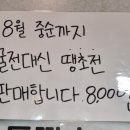 8월 중순까지
굴전대신 땡초전
판매합니다. 8,000